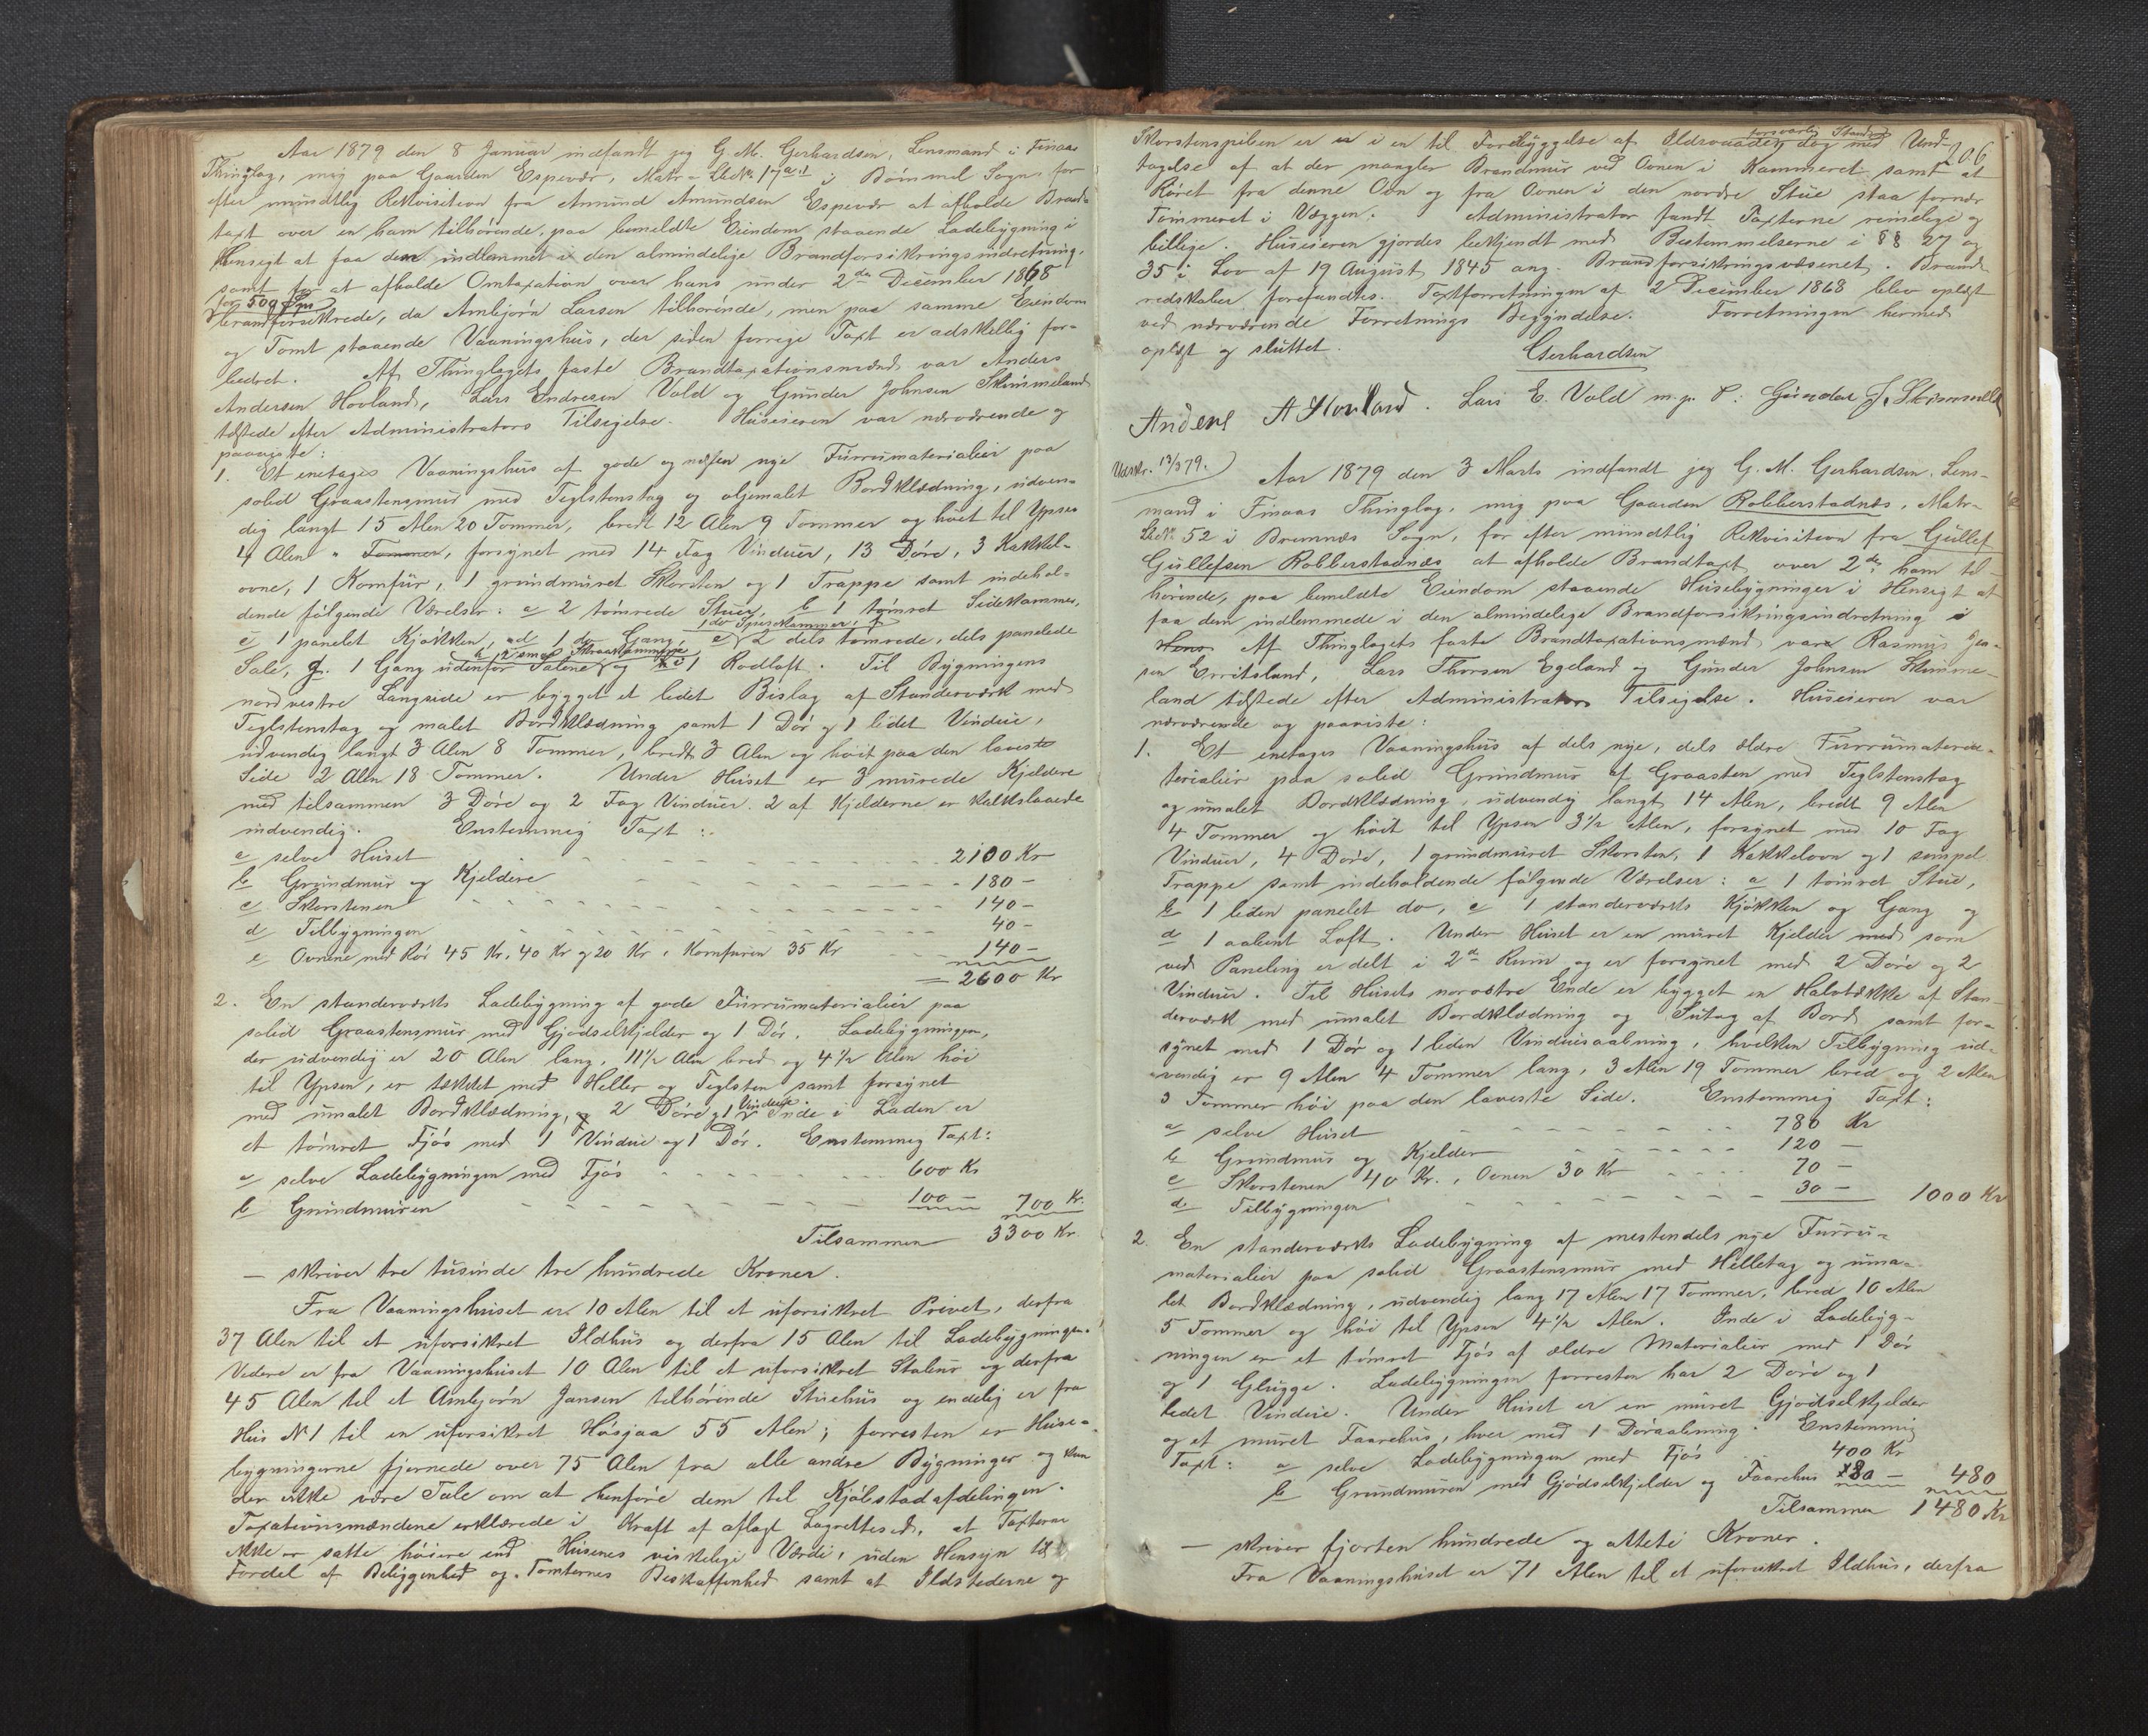 Aar 1879 den 8 Januar indfandt jeg G. M. Gerhardsen, Lensmand i Finaas
Thinglag, mig paa Gaarden Espevær, Matr-LbNr. 17 a.1 i Bømmel Sogn, for
efter mundtlig Rekvisition fra Amund Amundsen Espevær at afholde Brand-
taxt over en ham tilhørende, paa bemeldte Eiendom staaende Ladebygning i
Hensigt at faa den indlemmet i den almindelige Brandforsikringsindretning,
samt for at afholde Omtaxation over hans under 2den December 1868
for 509 Spd
brandforsikrede, da Ambjørn Larsen tilhørende, men paa samme Eiendom
og Tomt staaende Vaaningshus, der siden forrige Taxt er adskillig for-
bedret. Af Thinglagets faste Brandtaxationsmænd var Anders
Andersen Hovland, Lars Endresen Vold og Gunder Johnsen Skimmeland
tilstede efter Administrators Tilsigelse. Huseieren var nærværende og
paaviste:
1. Et enetages Vaaningshus af gode og næsten nye Furrumaterialier paa
solid Graastensmur med Teglstenstag og oljemalet Bordklædning, udven-
dig langt 15 Alen 20 Tommer, bredt 12 Alen 9 Tommer og høit til Ypsen
4 Alen " Tommer, forsynet med 14 Fag Vinduer, 13 Døre, 3 Kakkel-
ovne, 1 Komfur, 1 grundmuret Skorsten og 1 Trappe samt indehol-
dende følgende Værelser: a 2 tømrede Stuer, b 1 tømret Sidekammer,
1 do Spisekammer, f
c 1 panelet Kjøkken, d 1 do Gang, e 2 dels tømrede, dels panelede
h 2 smaa Skraakammere
Sale, g. 1 Gang udenfor Salene og i 1 Rodloft. Til Bygningens
nordvestre Langside er bygget et lidet Bislag af Standerværk med
Teglstenstag og malet Bordklædning samt 1 Dør og 1 lidet Vindue,
udvendig langt 3 Alen 8 Tommer, bredt 3 Alen og høit paa den laveste
Side 2 Alen 18 Tommer. Under Huset er 3 murede Kjeldere
med tilsammen 3 Døre og 2 Fag Vinduer. 2 af Kjelderne er kalkslaaede
indvendig. Enstemmig Taxt:
a selve Huset 2100 Kr
b Grundmur og Kjeldere 180 -
c Skorstenen 140 -
d Tilbygningen 40 -
e Ovnene med Rør 45 Kr, 40 Kr og 20 Kr, Komfuren 35 Kr 140 -
= 2600 Kr
2. En standerværks Ladebygning af gode Furrumaterialier paa
solid Graastensmur med Gjødselkjelder og 1 Dør. Ladebygningen,
der udvendig er 20 Alen lang, 11 1/2 Alen bred og 4 1/2 Alen høi
til Ypsen, er tækket med Heller og Teglsten samt forsynet
Vindue.
med umalet Bordklædning, 2 Døre og 1 Inde i Laden er
et tømret Fjøs med 1 Vindue og 1 Dør. Enstemmig Taxt:
a selve Ladebygningen med Fjøs 600 Kr
b Grundmuren 100 - 700 Kr.
Tilsammen 3300 Kr.
- skriver tre tusinde tre hundrede Kroner.
Fra Vaaningshuset er 10 Alen til et uforsikret Privet, derfra
37 Alen til et uforsikret Ildhus og derfra 15 Alen til Ladebygningen.
Videre er fra Vaaningshuset 10 Alen til et uforsikret Stabur og derfra
45 Alen til et Ambjørn Jansen tilhørende Stuehus og endelig er fra
Hus No 1 til en uforsikret Høsjaa 55 Alen; forresten er Huse-
bygningerne fjernede over 75 Alen fra alle andre Bygninger og kan
der ikke være Tale om at henføre dem til Kjøbstadafdelingen.
Taxationsmændene erklærede i Kraft af aflagt Lagrettesed, at Taxterne
ikke er satte høiere end Husenes virkelige Værdi, uden Hensyn til
Fordel af Beliggenhed og Tomternes Beskaffenhed samt at Ildstederne og
206
forsvarlig Stand
Skorstenspiben er i en til Forebyggelse af Ildsvaaden dog med Und-
tagelse af at der mangler Brandmur ved Ovnen i Kammeret samt at
Røret fra denne Ovn og fra Ovnen i den nordre Stue staa fornær
Tømmeret i Væggen. Administrator fandt Taxterne rimelige og
billige. Huseieren gjordes bekjendt med Bestemmelserne i §§ 27 og
35 i Lov af 19 August 1845 ang. Brandforsikringsvæsenet. Brand-
redskaber forefandtes. Taxtforretningen af 2 December 1868 blev oplæst
ved nærværende Forretnings Begyndelse. Forretningen hermed
oplæst og sluttet.
Gerhardsen
Anders A Hovland. Lars E. Vold m. p. P. Gunder J. Skimmeland
Udskr. 13/3 79.
Aar 1879 den 3 Marts indfandt jeg G. M. Gerhardsen, Lens-
mand i Finaas Thinglag, mig paa Gaarden Robberstadnæs, Matr-
LbNr. 52 i Bremnæs Sogn, for efter mundtlig Rekvisition fra Gullef
Gullefsen Robberstadnæs at afholde Brandtaxt over 2de ham til-
hørende, paa bemeldte Eiendom staaende Husebygninger i Hensigt at
faa dem indlemmede i den almindelige Brandforsikringsindretning i
Hens. Af Thinglagets faste Brandtaxationsmænd var Rasmus Jen-
sen Erritsland, Lars Thorsen Egeland og Gunder Johnsen Skimme-
land tilstede efter Administrators Tilsigelse. Huseieren var
nærværende og paaviste:
1. Et enetages Vaaningshus af dels nye, dels ældre Furrumateria-
terialier paa solid Grundmur af Graasten med Teglstenstag
og umalet Bordklædning, udvendig langt 14 Alen, bredt 9 Alen
4 Tommer og høit til Ypsen 3 1/2 Alen, forsynet med 10 Fag
Vinduer, 4 Døre, 1 grundmuret Skorsten, 1 Kakkelovn og 1 simpel
Trappe samt indeholdende følgende Værelser: a 1 tømret Stue,
b 1 liden panelet do, c 1 standerværks Kjøkken og Gang og
d 1 aabent Loft. Under Huset er en muret Kjelder med som
ved Paneling er delt i 2de Rum og er forsynet med 2 Døre og 2
Vinduer. Til Husets norøstre Ende er bygget en Halvtække af Stan-
derværk med umalet Bordklædning og Sutag af Bord samt for-
synet med 1 Dør og 1 liden Vinduesaabning, hvilken Tilbygning ud-
vendig er 9 Alen 4 Tommer lang, 3 Alen 19 Tommer bred og 2 Alen
3 Tommer høi paa den laveste Side. Enstemmig Taxt:
a selve Huset 780 Kr
b Grundmur og Kjelder 120 -
c Skorstenen 40 Kr., Ovnen 30 Kr 70 -
d Tilbygningen 30 - 1000 Kr
2. En standerværks Ladebygning af mestendels nye Furru-
materialier paa solid Graastensmur med Helletag og uma-
let Bordklædning, udvendig lang 17 Alen 17 Tommer, bred 10 Alen
5 Tommer og høi til Ypsen 4 1/2 Alen. Inde i Ladebyg-
ningen er et tømret Fjøs af ældre Materialier med 1 Dør
og 1 Glugge. Ladebygningen forresten har 2 Døre og 1
lidet Vindue. Under Huset er en muret Gjødselkjelder
og et muret Faarehus, hver med 1 Døraabning. Enstemmig
Taxt: a selve Ladebygningen med Fjøs 400 Kr
b Grundmuren med Gjødselkjelder og Faarehus 80 - 480
Tilsammen 1480 Kr
- skriver fjorten hundrede og otteti Kroner.
Fra Vaaningshuset er 71 Alen til et uforsikret Ildhus, derfra